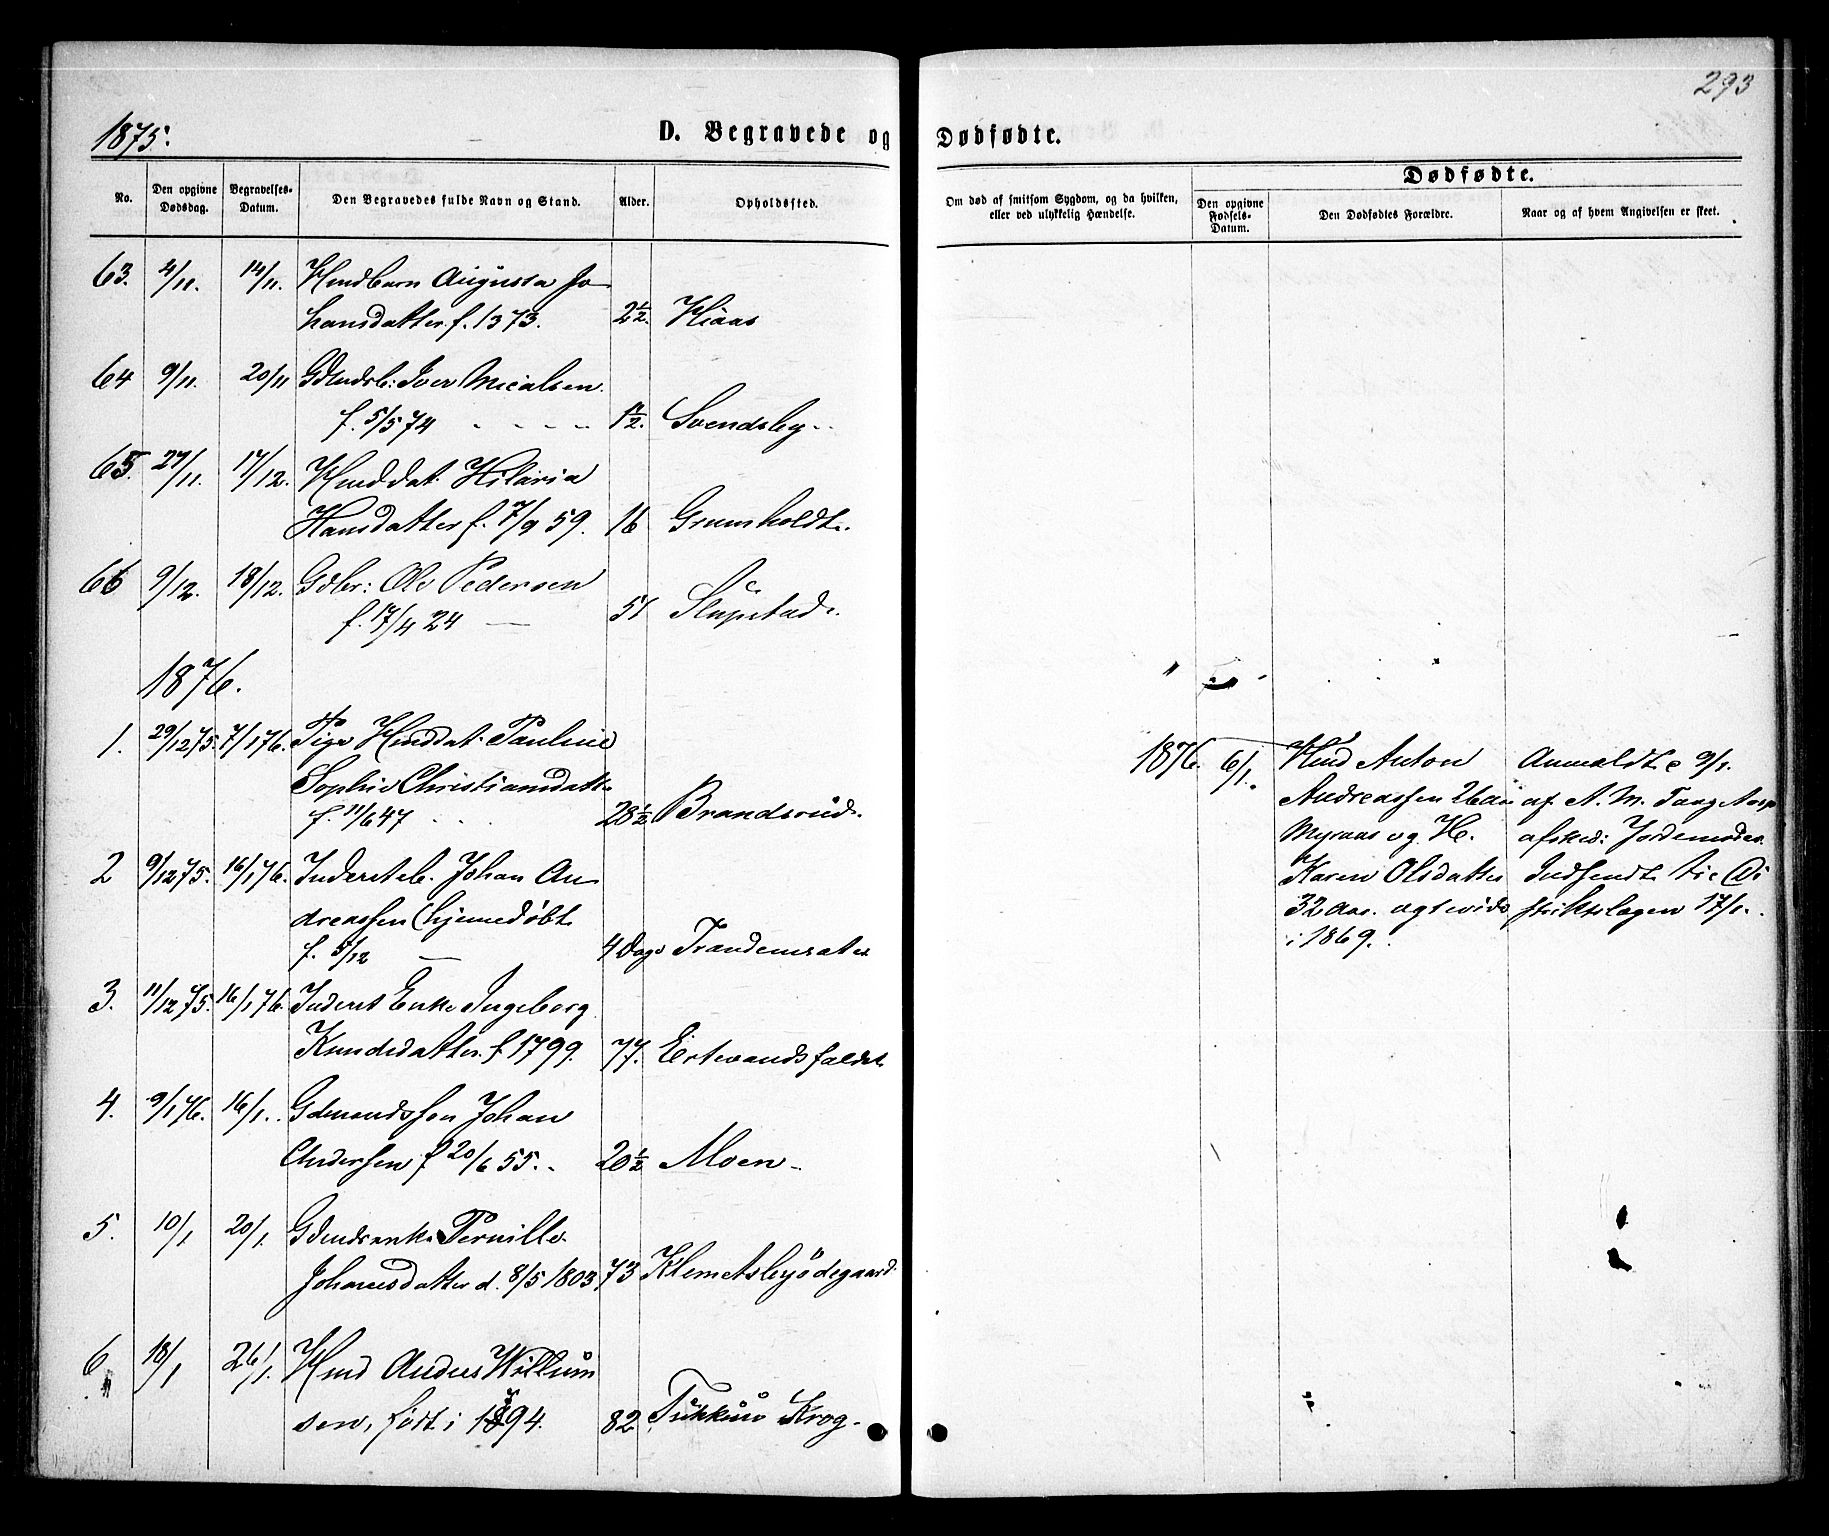 293
1875.
D. Begravede og Dødfødte.
No.
Den opgivne Dødsdag.
Begravelses-Datum.
Den Begravedes fulde Navn og Stand.
Alder.
Opholdssted.
Om død af smitsom Sygdom, og da hvilken, eller ved ulykkelig Hændelse.
Dødfødte.
Den opgivne Fødsels-Datum.
Den Dødfødtes Forældre.
Naar og af hvem Angivelsen er skeet.
63. 4/11. 14/11. Hmdbarn Augusta Jo-
hansdatter f. 1873. 2½. Kiaas
64 9/11. 20/11 Gdmdsb: Iver Micalsen.
f. 5/5 74 1½. Svendsby
65. 27/11. 17/12. Hmddat. Hilaria
Hansdatter f. 7/9 59. 16 Grumholdt.
66 9/12. 18/12. Gdbr: Ole Pedersen
f. 17/4 24 51
1876.
1. 29/12 75. 7/1 76. Pige Hmddat. Pauline
Sophie Christiansdatt.
f. 11/6 47 28½ Brandsrud.
2 9/12 75. 16/1 76. Indersteb. Johan An-
dreassen (hjemmedøbt
f. 5/12 4 Dage
3. 11/12 75. 16/1 76. Inderst Enke Ingeborg
Knudsdatter f. 1799. 77.
4. 9/1 76. 16/1. Gdmandssøn Johan
Andersen f 20/6 55. 20½ Moen
5. 10/1 20/1. Gdmdsenke Pernille
Johannesdatter d. 8/5 1803, 73 Klemetsbyødegaard.
6 18/1 26/1. Hmd Anders Willum
sen, født i 1794. 82 Krog
1876. 6/1. Hmd Anton Anmeldt 9/1.
Andreassen 26 af A. M. Tang
Myraas og H. Jordemoder.
Karen Olsdatter Indsendt til Di
32 Aar. ægtevide striktslægen 17/1.
i 1869.